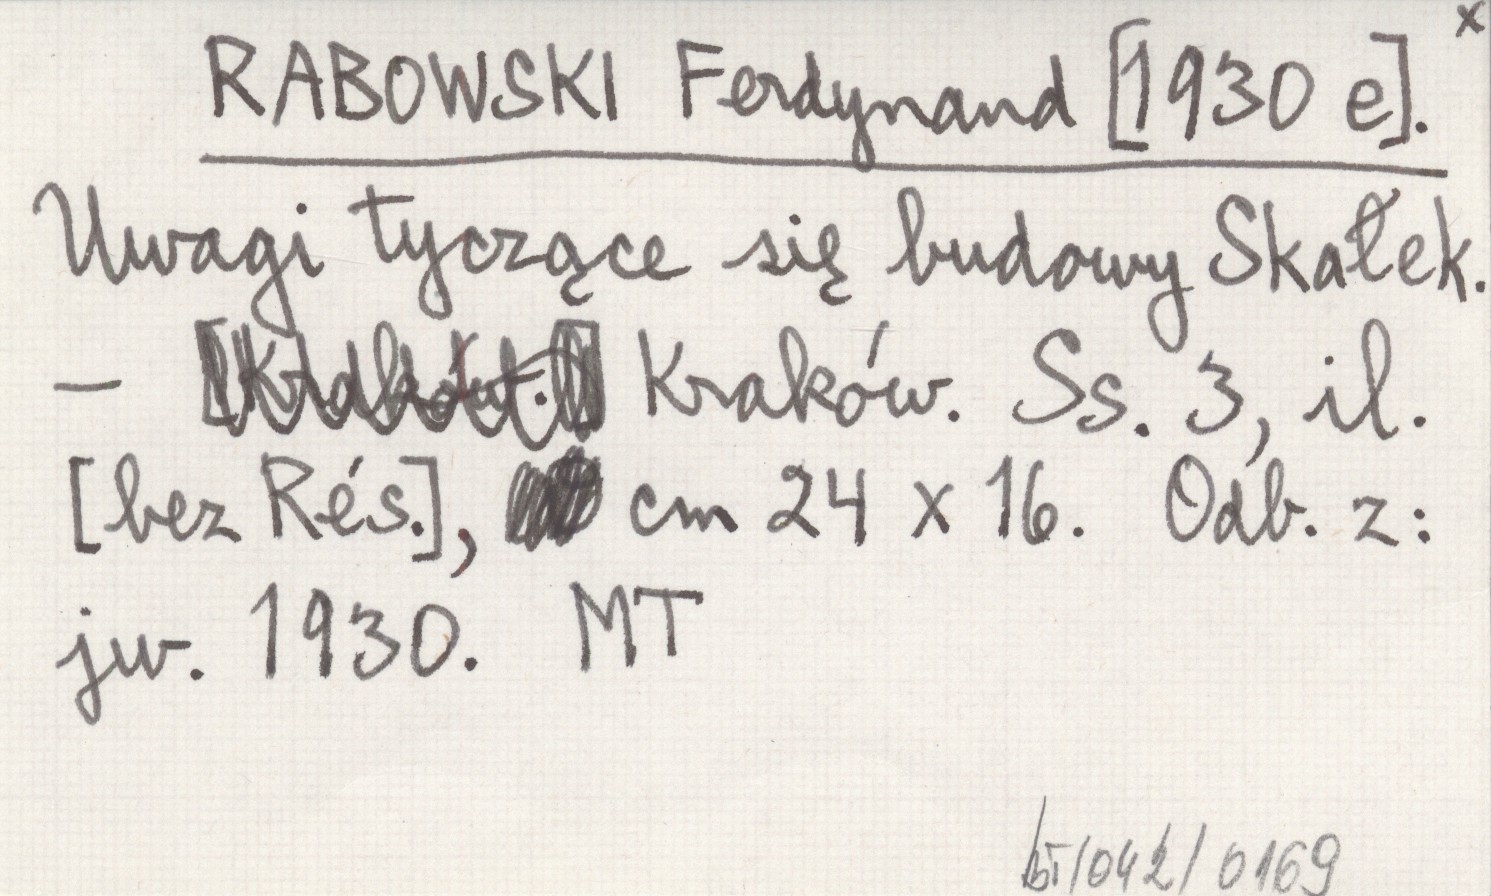 x
RABOWSKI Ferdynand [1930 e].
Uwagi tyczące się budowy Skałek.
— Kraków. Ss. 3, il.
[bez Rés.], cm 24 x 16. Odb. z:
jw. 1930. MT
/042/0169